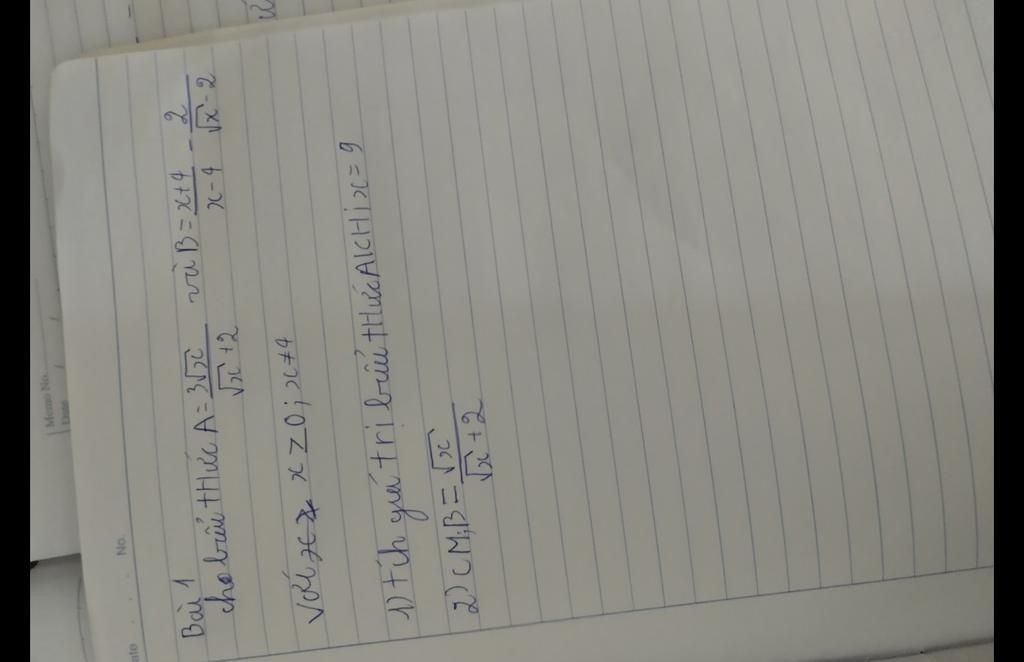 Memo No.
Date / /
No.
Bài 1
cho biểu tHức A = 3√x / √x + 2 và B = x+4 / x-4 - 2 / √x - 2
Với x ≥ 0; x ≠ 4
1) tíh giá trị biểu tHức A kHi x = 9
2) CM: B = √x / √x + 2